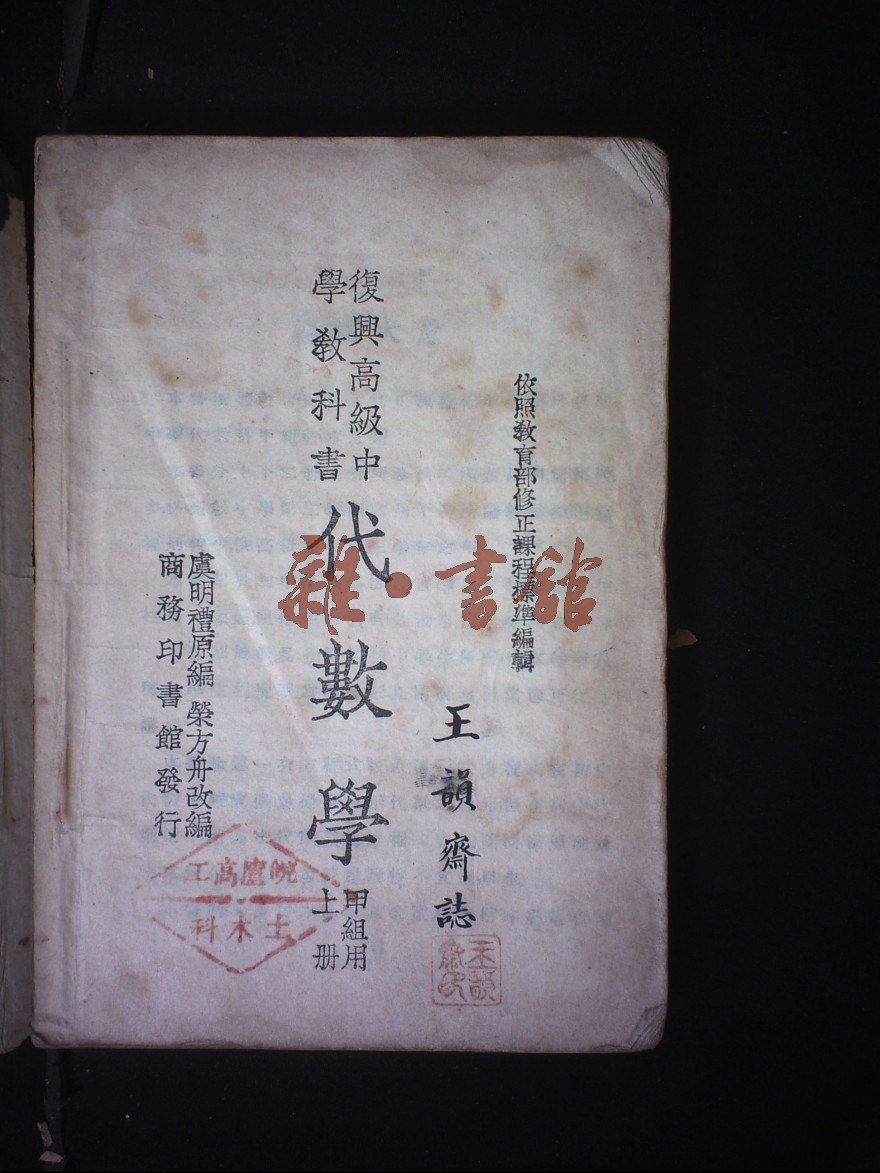 依照教育部修正課程標準編輯
王韻齋誌
復興高級中
學教科書
代數學
甲組用
上册
虞明禮原編 榮方舟改編
商務印書館發行
皖廬高工
土木科
雜·書館